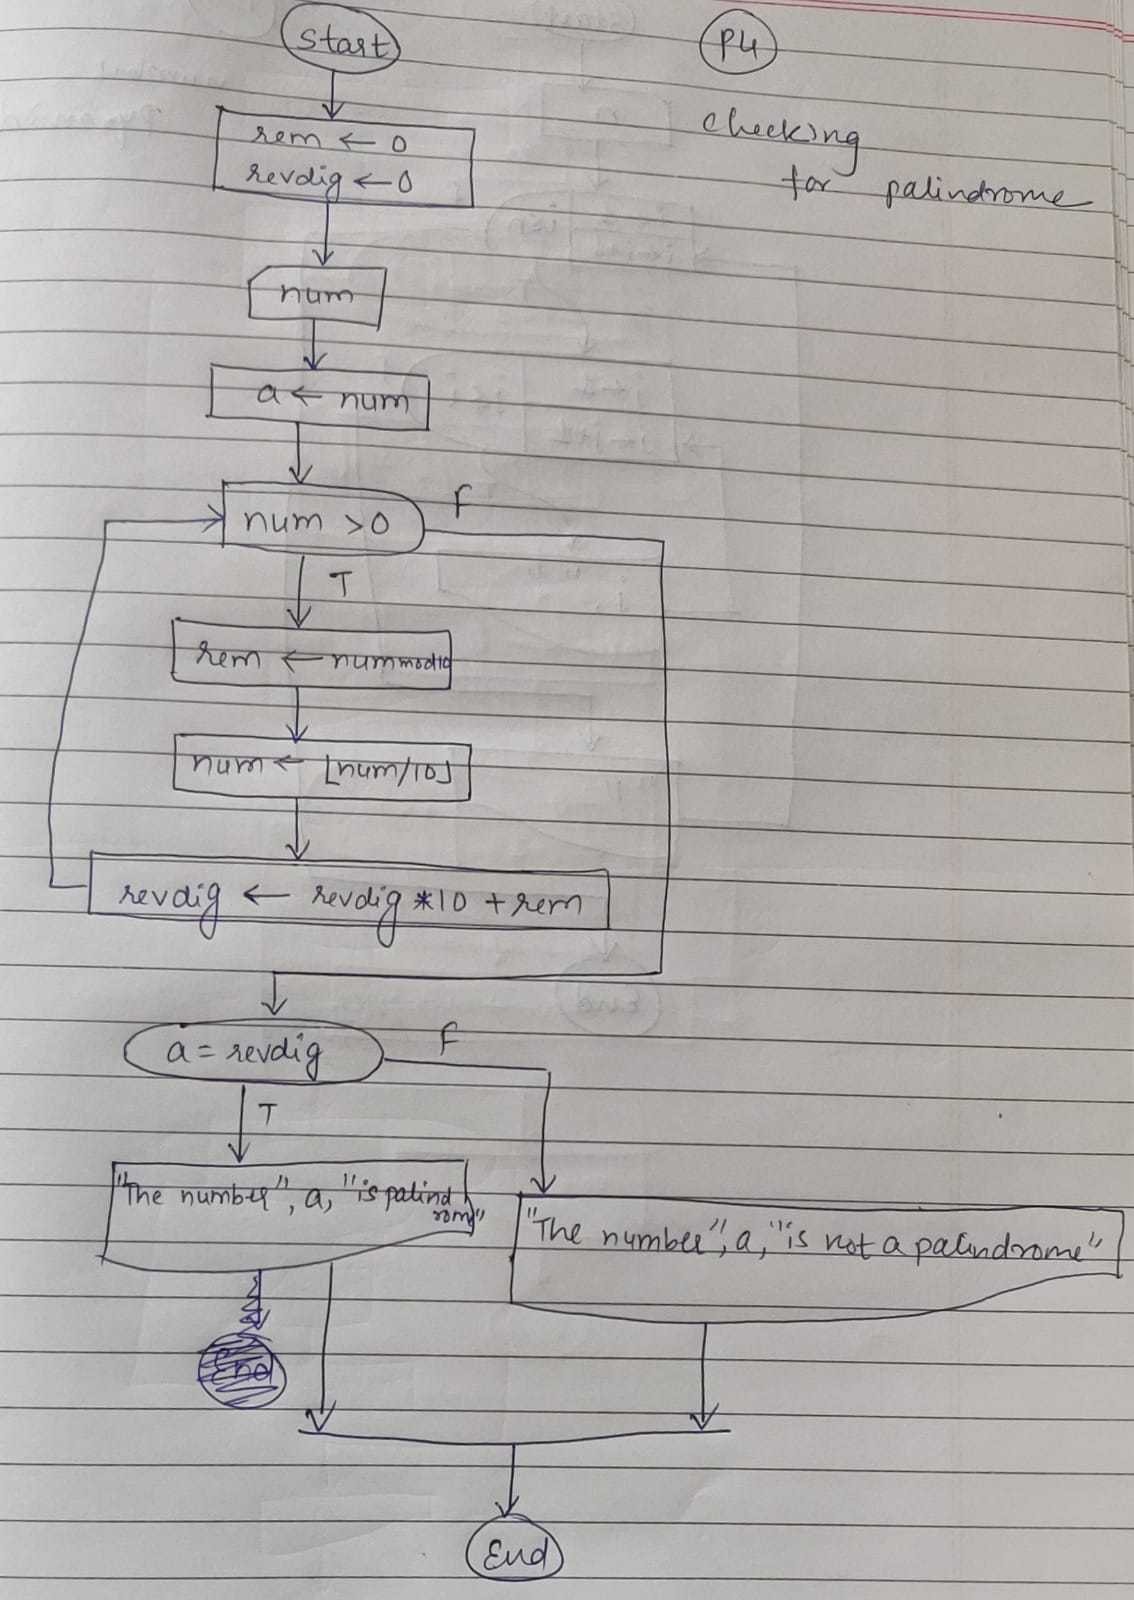 Start
P4
checking
for palindrome
rem ← 0
revdig ← 0
num
a ← num
num > 0
F
T
rem ← num mod 10
num ← ⌊num/10⌋
revdig ← revdig * 10 + rem
a = revdig
F
T
"The number", a, "is palind
rom"
"The number", a, "is not a palindrome"
End
End